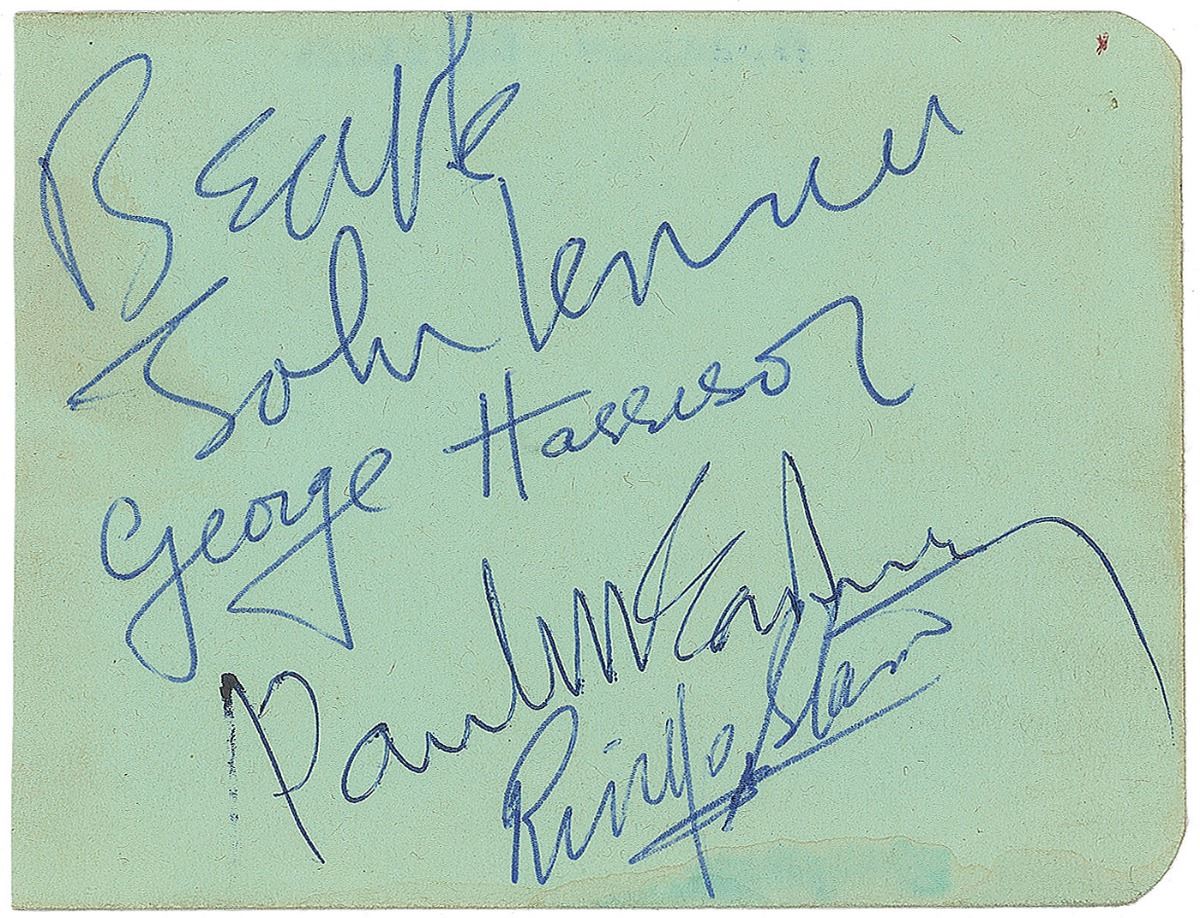 Beatle
John Lennon
George Harrison
Paul McCartney
Ringo Starr